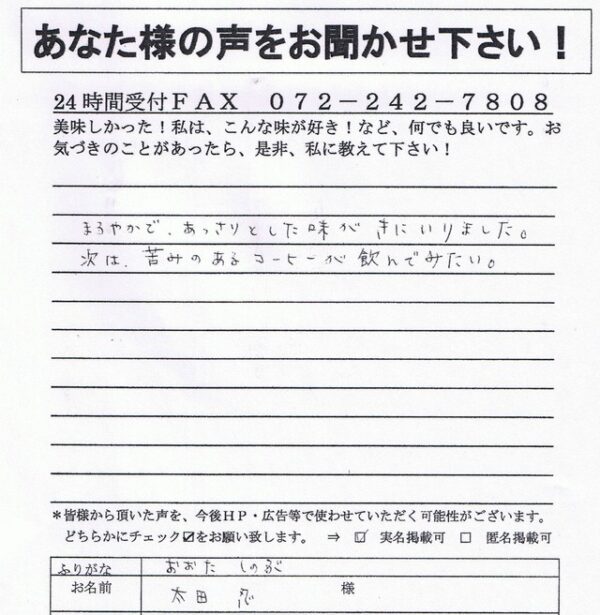 あなた様の声をお聞かせ下さい！
24時間受付ＦＡＸ　０７２－２４２－７８０８
美味しかった！私は、こんな味が好き！など、何でも良いです。お
気づきのことがあったら、是非、私に教えて下さい！
まろやかで、あっさりとした味がきにいりました。
次は、苦みのあるコーヒーが飲んでみたい。
＊皆様から頂いた声を、今後ＨＰ・広告等で使わせていただく可能性がございます。
どちらかにチェック☑をお願い致します。　⇒　☑　実名掲載可　□　匿名掲載可
ふりがな　おおた しのぶ
お名前　太田 忍　様